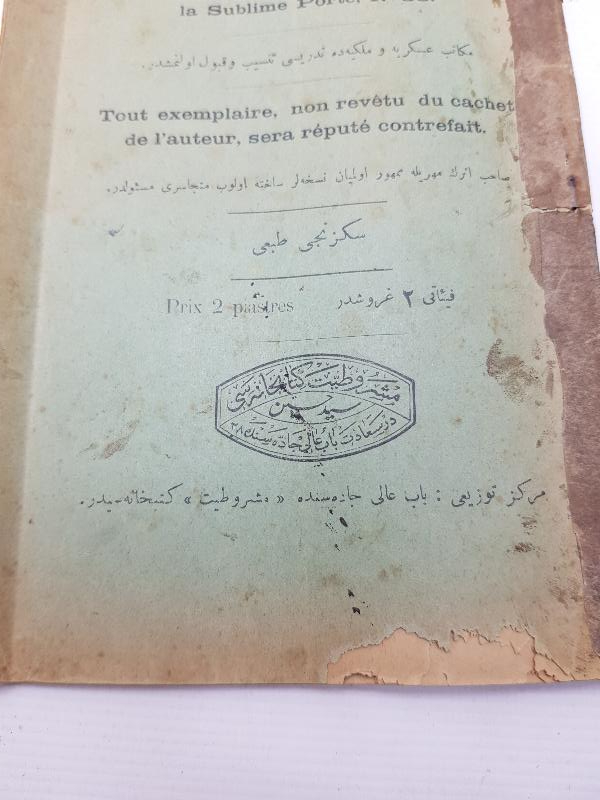 la Sublime Porte,
مكاتب عسكريه و ملكيه‌ده تدريسى تنسيب وقبول اولنمشدر.
Tout exemplaire, non revêtu du cachet
de l'auteur, sera réputé contrefait.
صاحب اثرك مهريله ممهور اوليان نسخه‌لر ساخته اولوب متجاسرى مسئولدر.
سكزنجى طبعى
Prix 2 piastres
فيئاتى ٢ غروشدر
مشروطيت كتابخانه‌سى
سيد حسين
درسعادت باب عالى جاده سنده ٢٨
مركز توزيعى : باب عالى جاده‌سنده « مشروطيت » كتبخانه‌سيدر.